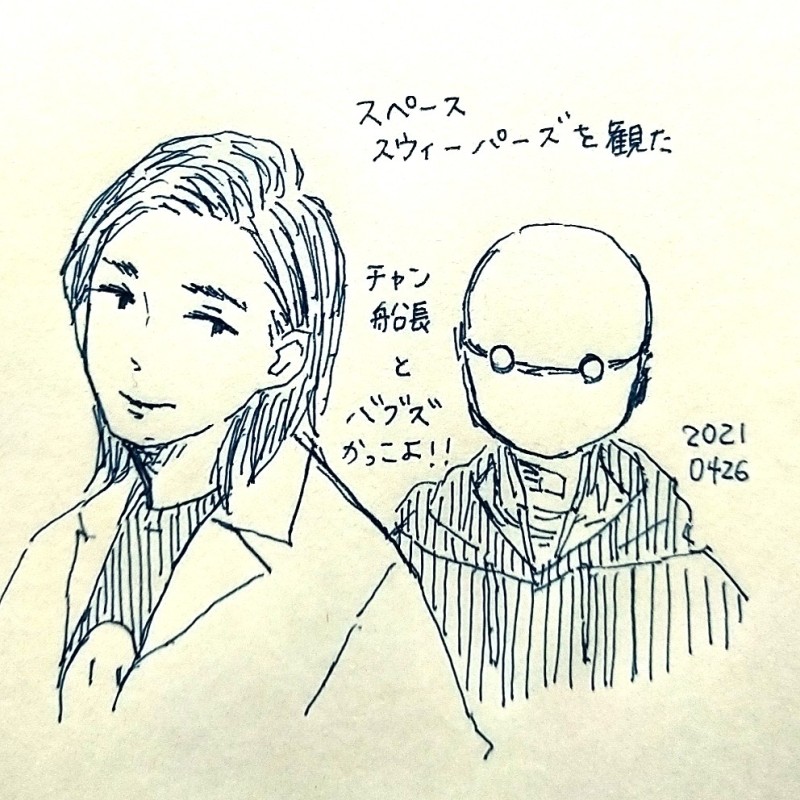 スペース
スウィーパーズを観た
チャン
船長
と
バブズ
かっこよ!!
2021
0426